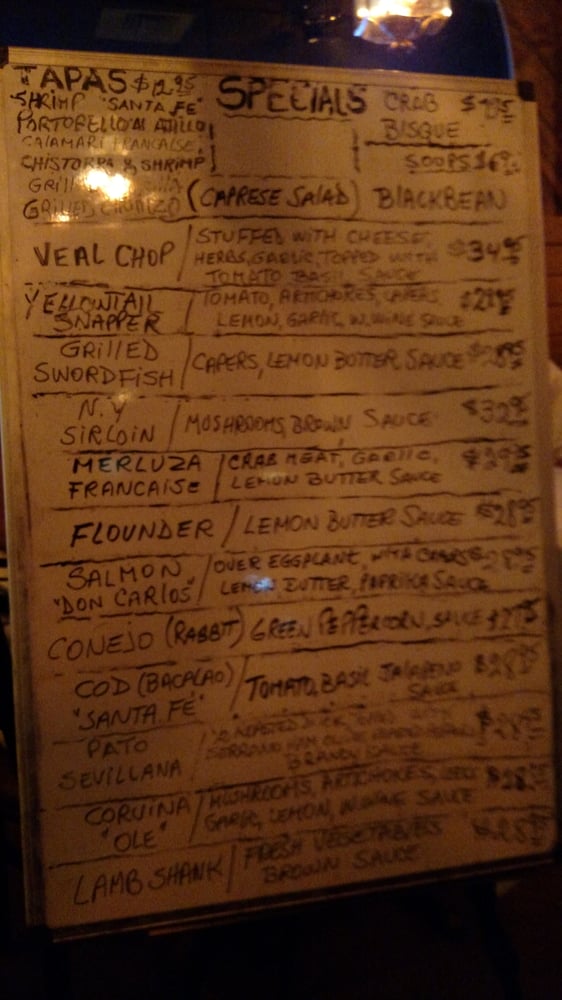 TAPAS $12.95
SHRIMP "SANTA FE"
PORTOBELLO AL AJILLO
CALAMARI FRANCAISE,
CHISTORRA & SHRIMP
GRILLED CHORIZO
SPECIALS
(CAPRESE SALAD)
CRAB
BISQUE
SOUPS
BLACKBEAN
VEAL CHOP / STUFFED WITH CHEESE, $34.95
HERBS, GARLIC, TOPPED WITH
TOMATO BASIL SAUCE
YELLOWTAIL / TOMATO, ARTICHOKES, CAPERS,
SNAPPER LEMON, GARLIC, W.WINE SAUCE
GRILLED
SWORDFISH / CAPERS, LEMON BUTTER SAUCE $28.95
N.Y
SIRLOIN / MUSHROOMS, BROWN SAUCE $32.95
MERLUZA / CRAB MEAT, GARLIC,
FRANCAISE LEMON BUTTER SAUCE
FLOUNDER / LEMON BUTTER SAUCE $28.95
SALMON / OVER EGGPLANT, WITH
"DON CARLOS" LEMON BUTTER, PAPRIKA SAUCE
CONEJO (RABBIT) GREEN PEPPERCORN, SAUCE $27.95
COD (BACALAO) / TOMATO, BASIL JALAPENO $28.95
"SANTA FE" SAUCE
PATO
SEVILLANA / SERRANO HAM
BRANDY SAUCE
CORVINA / MUSHROOMS, ARTICHOKES, $28.95
"OLE" GARLIC, LEMON, W.WINE SAUCE
LAMB SHANK / FRESH VEGETABLES $28.95
BROWN SAUCE